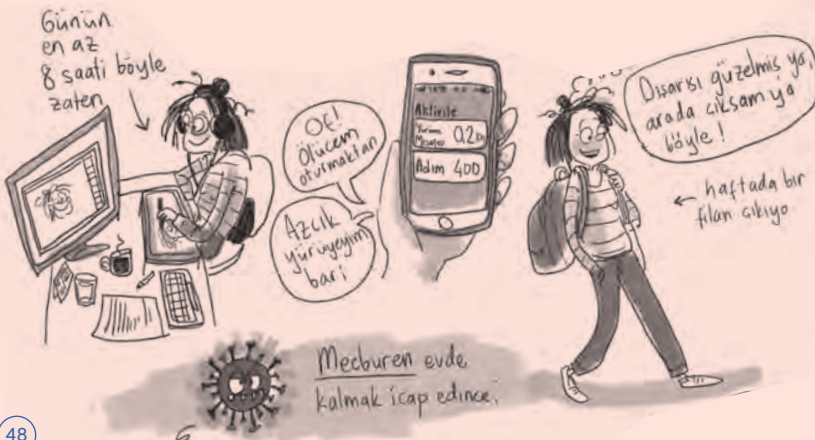 Günün
en az
8 saati böyle
zaten
Of!
Ölücem
oturmaktan
Azcık
yürüyeyim
bari
Aktivite
Yürüme
Mesafesi 0.2
Adım 400
Dışarısı güzelmiş ya,
arada çıksam ya
böyle!
← haftada bir
filan çıkıyo
Mecburen evde
kalmak icap edince;
48